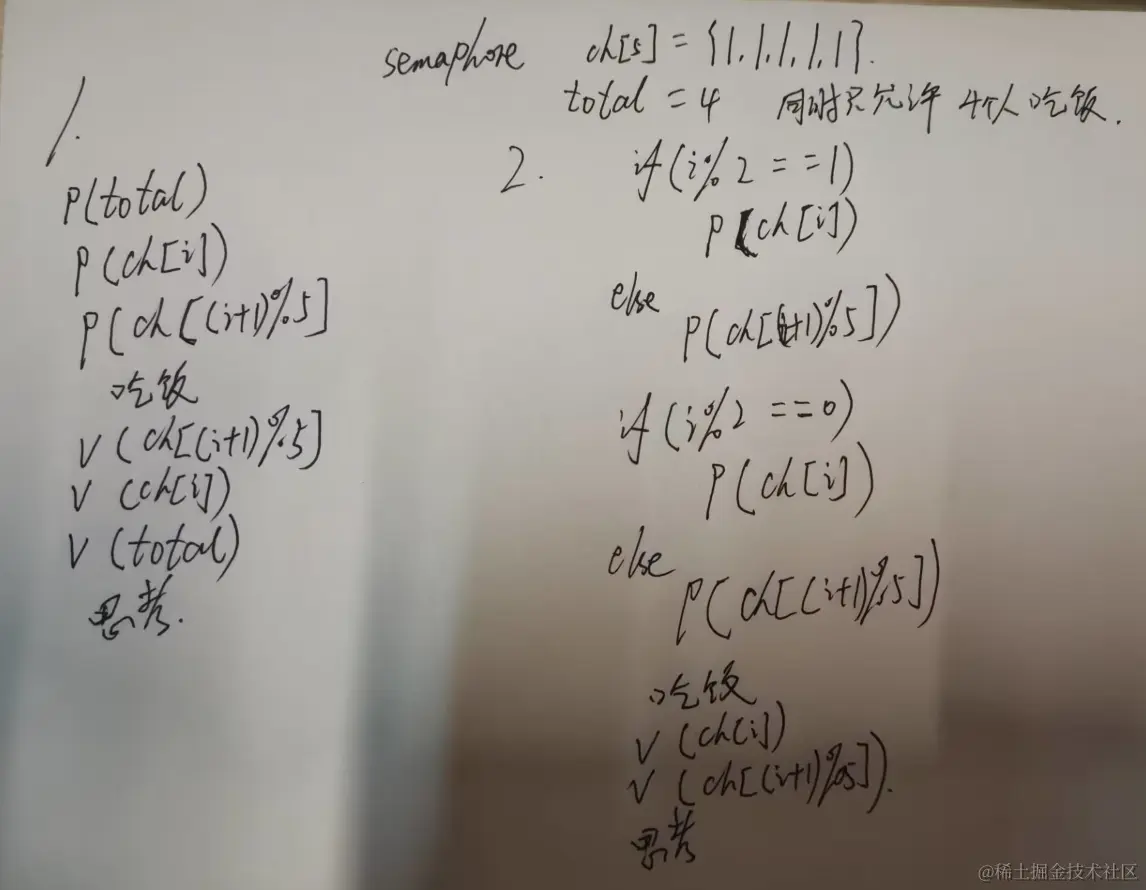 semaphore ch[5] = {1,1,1,1,1}.
total = 4 同时只允许 4个人吃饭.
1.
P(total)
P(ch[i])
P(ch[(i+1)%5]
吃饭
V(ch[(i+1)%5]
V(ch[i])
V(total)
思考.
2.
if(i%2==1)
P(ch[i])
else
P(ch[(i+1)%5])
if(i%2==0)
P(ch[i])
else
P(ch[(i+1)%5])
吃饭
V(ch[i])
V(ch[(i+1)%5]).
思考
@稀土掘金技术社区